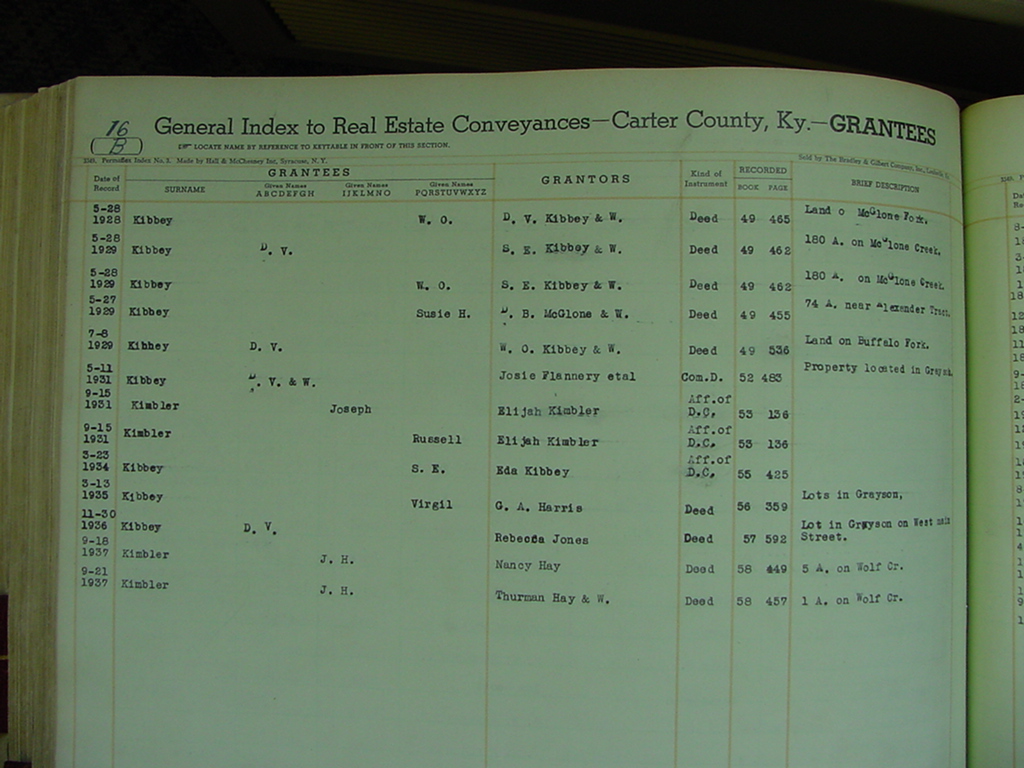 16
B
General Index to Real Estate Conveyances—Carter County, Ky.—GRANTEES
LOCATE NAME BY REFERENCE TO KEYTABLE IN FRONT OF THIS SECTION.
Permaflex Index No. 3. Made by Hall & McChesney Inc, Syracuse, N. Y. Sold by The Bradley & Gilbert Company, Inc.,
Date of Record GRANTEES GRANTORS Kind of Instrument RECORDED BRIEF DESCRIPTION
SURNAME Given Names ABCDEFGH Given Names IJKLMNO Given Names PQRSTUVWXYZ BOOK PAGE
5-28 1928 Kibbey W. O. D. V. Kibbey & W. Deed 49 465 Land o McGlone Fork.
5-28 1929 Kibbey D. V. S. E. Kibbey & W. Deed 49 462 180 A. on McGlone Creek.
5-28 1929 Kibbey W. O. S. E. Kibbey & W. Deed 49 462 180 A. on McGlone Creek.
5-27 1929 Kibbey Susie H. D. B. McGlone & W. Deed 49 455 74 A. near Alexander Tract.
7-8 1929 Kibbey D. V. W. O. Kibbey & W. Deed 49 536 Land on Buffalo Fork.
5-11 1931 Kibbey D. V. & W. Josie Flannery etal Com.D. 52 483 Property located in Grayson.
9-15 1931 Kimbler Joseph Elijah Kimbler Aff.of D.C. 53 136
9-15 1931 Kimbler Russell Elijah Kimbler Aff.of D.C. 53 136
3-23 1934 Kibbey S. E. Eda Kibbey Aff.of D.C. 55 425
3-13 1935 Kibbey Virgil G. A. Harris Deed 56 359 Lots in Grayson,
11-30 1936 Kibbey D. V. Rebecca Jones Deed 57 592 Lot in Grayson on West main Street.
9-18 1937 Kimbler J. H. Nancy Hay Deed 58 449 5 A. on Wolf Cr.
9-21 1937 Kimbler J. H. Thurman Hay & W. Deed 58 457 1 A. on Wolf Cr.